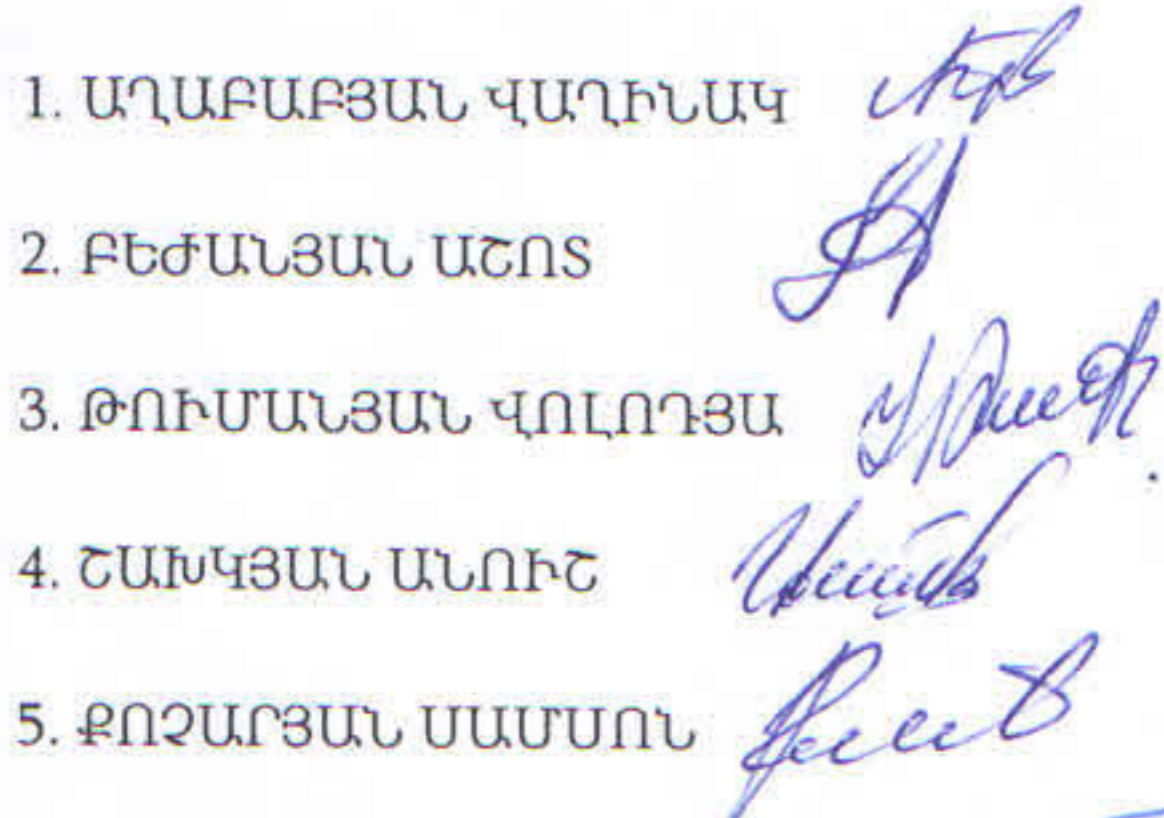 1. ԱՂԱԲԱԲՅԱՆ ՎԱՂԻՆԱԿ
2. ԲԵԺԱՆՅԱՆ ԱՇՈՏ
3. ԹՈՒՄԱՆՅԱՆ ՎՈԼՈԴՅԱ
4. ՇԱԽԿՅԱՆ ԱՆՈՒՇ
5. ՔՈՉԱՐՅԱՆ ՍԱՄՍՈՆ